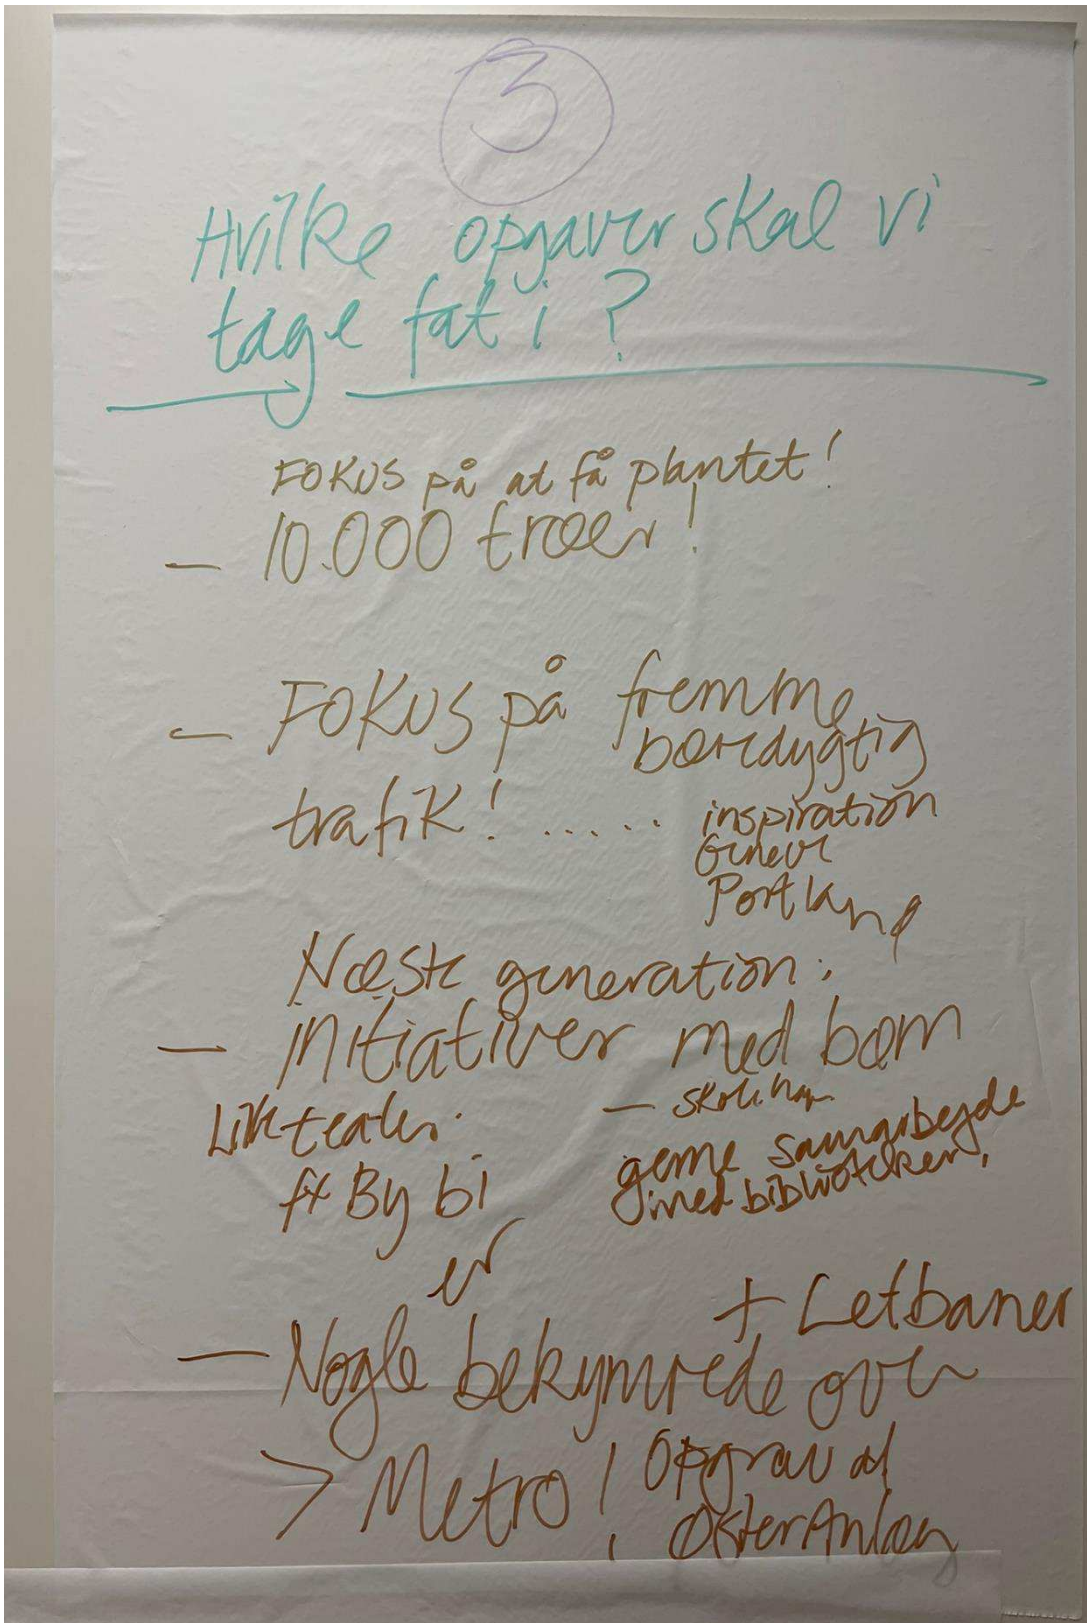 3
Hvilke opgaver skal vi
tage fat i ?
FOKUS på at få plantet!
- 10.000 træer!
- FOKUS på fremme
bæredygtig
trafik! ..... inspiration
Geneve
Portland
Næste generation:
- initiativer med børn
- skolehave
Lille teater.
fx By bi
gerne samarbejde
med biblioteker.
er
+ Letbaner
- Nogle bekymrede over
> Metro! Opgrav af
ØsterAnlæg